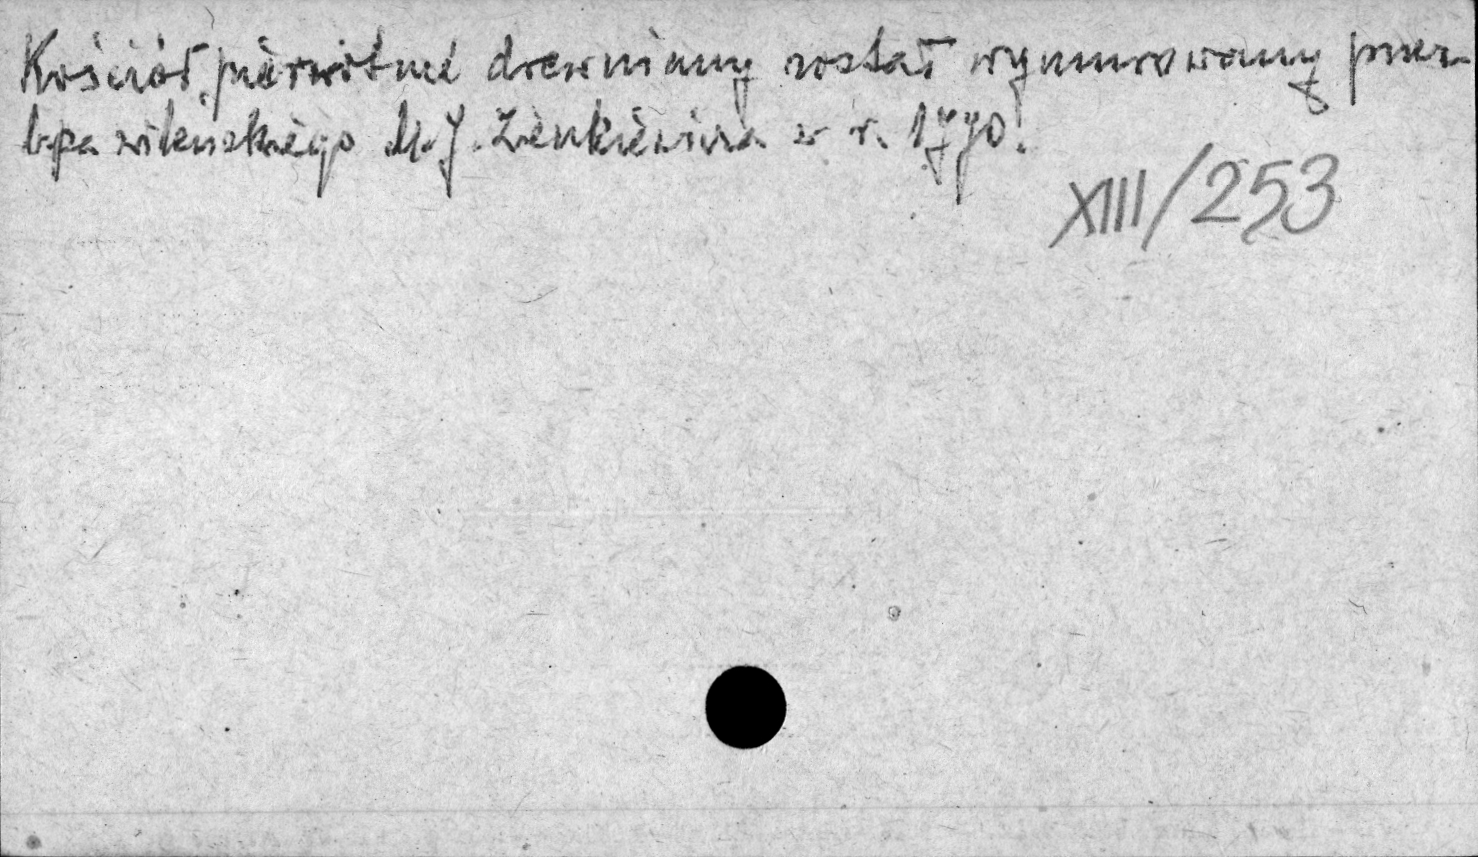 Kościół, pierwotnie drewniany został wymurowany przez
bpa wileńskiego M. J. Zienkiewicza w r. 1770.
XIII/253